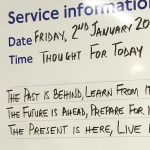 Service information
Date FRIDAY, 2ND JANUARY 20
Time THOUGHT FOR TODAY
THE PAST IS BEHIND, LEARN FROM
THE FUTURE IS AHEAD, PREPARE FOR
THE PRESENT IS HERE, LIVE